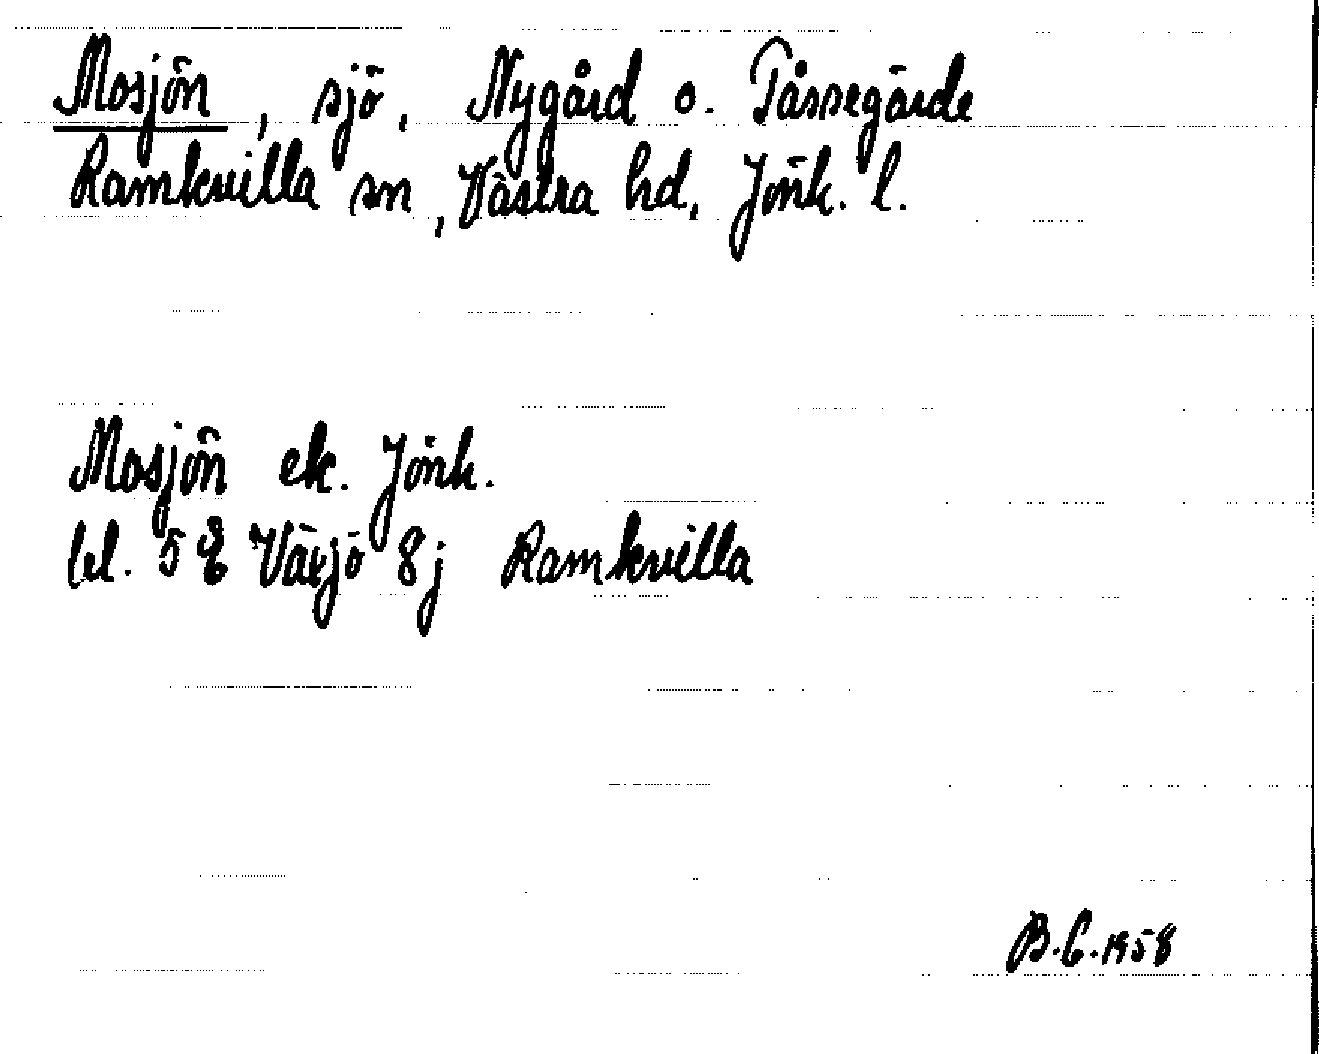 Mosjön, sjö, Nygård o. Tåssegärde
Ramkvilla sn, Västra hd, Jönk. l.
Mosjön ek. Jönk.
bl. 5 E Växjö 8j Ramkvilla
B.C. 1958